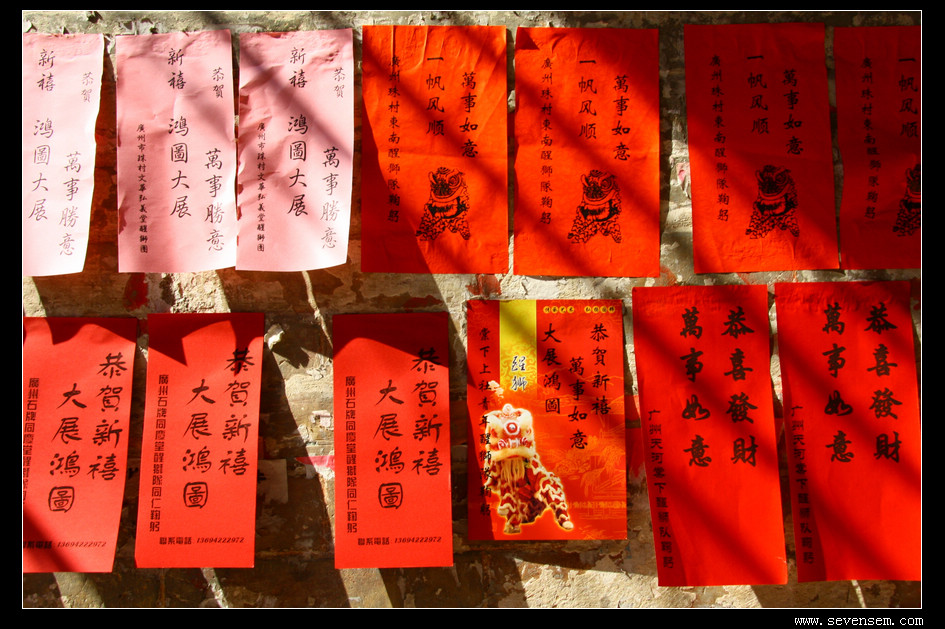 恭賀 萬事勝意
新禧 鴻圖大展
恭賀 萬事勝意
新禧 鴻圖大展
廣州市珠村文華弘義堂醒獅團
恭賀 萬事勝意
新禧 鴻圖大展
廣州市珠村文華弘義堂醒獅團
萬事如意
一帆风顺
廣州珠村東南醒獅隊鞠躬
萬事如意
一帆风顺
廣州珠村東南醒獅隊鞠躬
萬事如意
一帆风顺
廣州珠村東南醒獅隊鞠躬
一帆风顺
廣州珠村東南醒獅隊鞠躬
恭賀新禧
大展鴻圖
廣州石牌同慶堂醒獅隊同仁鞠躬
聯系電話 13694222972
恭賀新禧
大展鴻圖
廣州石牌同慶堂醒獅隊同仁鞠躬
聯系電話 13694222972
恭賀新禧
大展鴻圖
廣州石牌同慶堂醒獅隊同仁鞠躬
聯系電話 13694222972
恭賀新禧
萬事如意
大展鴻圖
醒獅
棠下上社青年醒獅隊鞠躬
恭喜發財
萬事如意
广州天河棠下醒狮队鞠躬
恭喜發財
萬事如意
广州天河棠下醒狮队鞠躬
www.sevensem.com